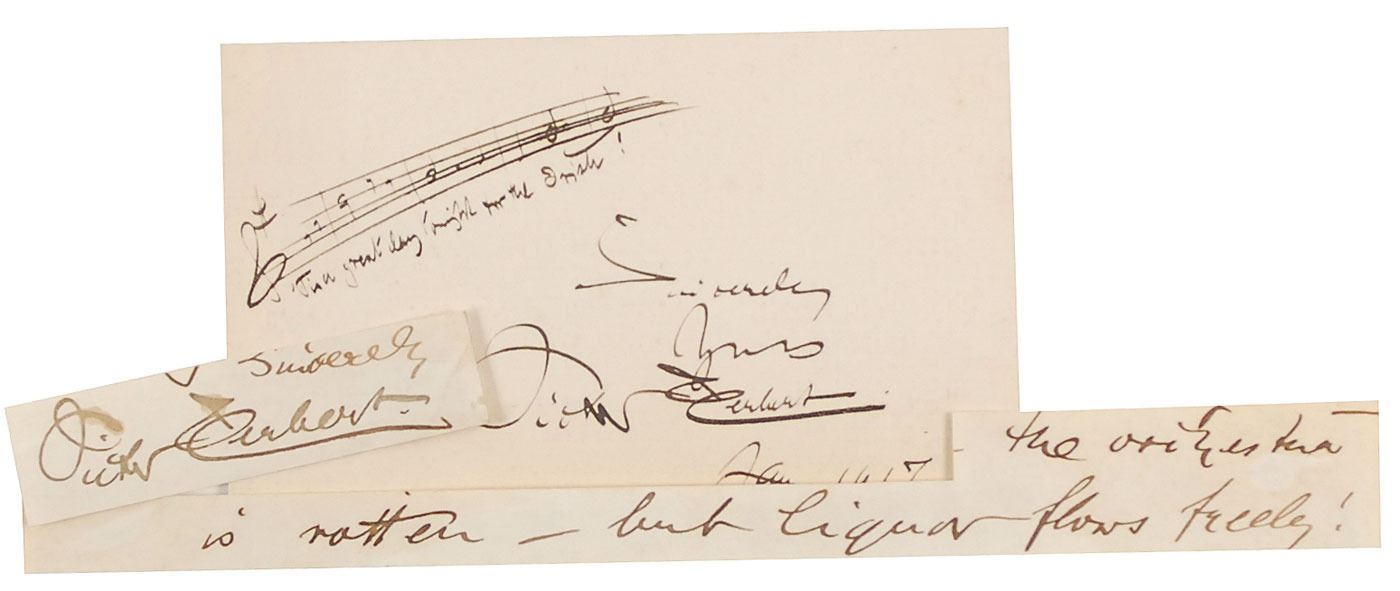 'Tis a great day tonight for the Irish!
Sincerely
Yours
Victor Herbert
Jan 1917
Sincerely
Victor Herbert.
- the orchestra
is rotten – but liquor flows freely!